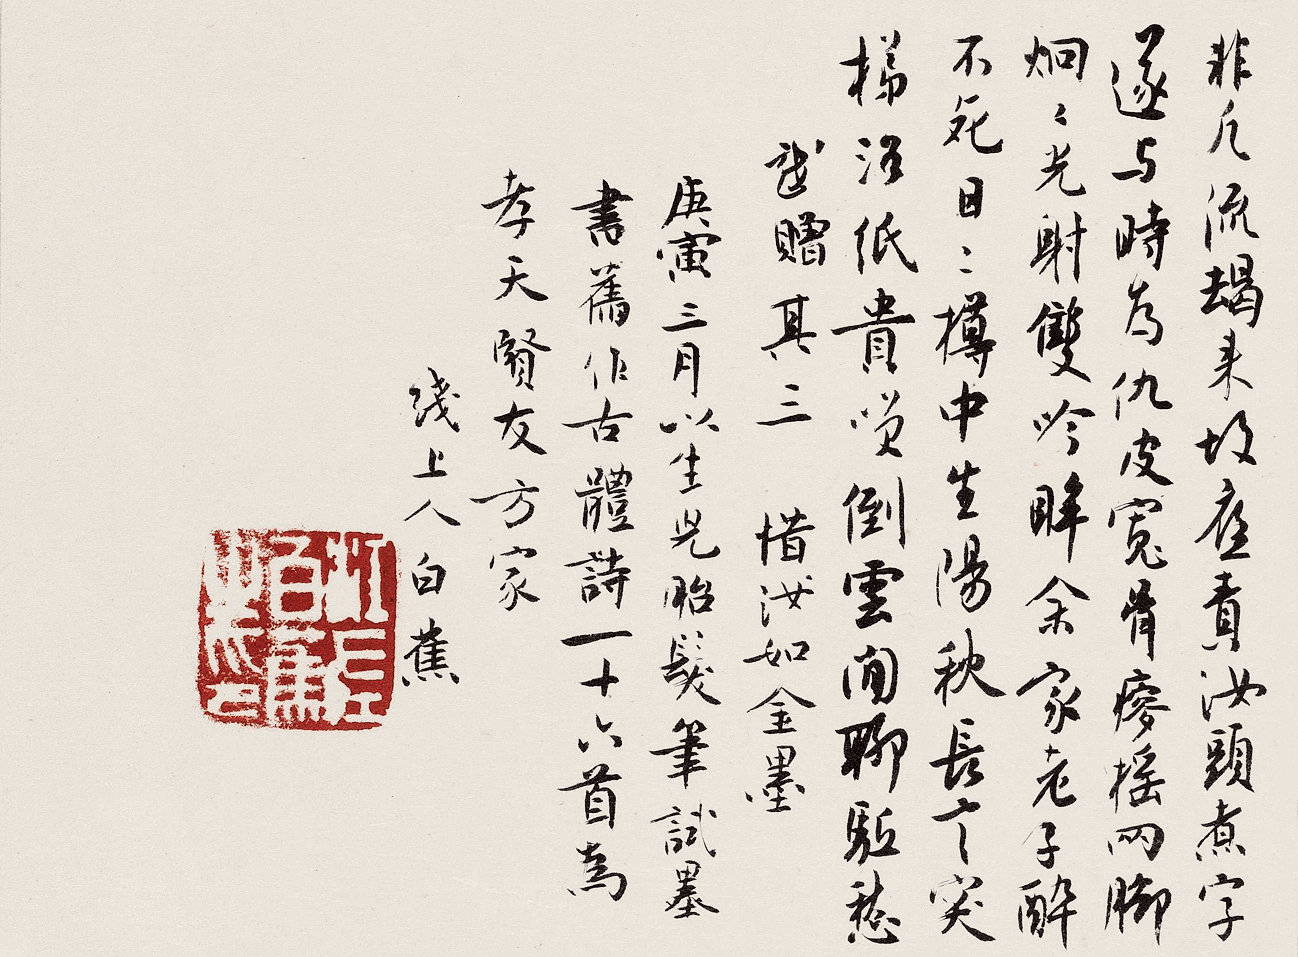 非凡流朅来故应責汝頭煮字
遂与時為仇皮寬骨瘦摇两脚
炯〻光射雙吟眸余家老子醉
不死日〻樽中生陽秋長丁突
梯洛紙貴嘆倒雲間聊駈愁
戲贈其三 惜汝如金墨
庚寅三月以生児胎髮筆試墨
書舊作古體詩一十六首為
孝天賢友方家
淺上人白蕉